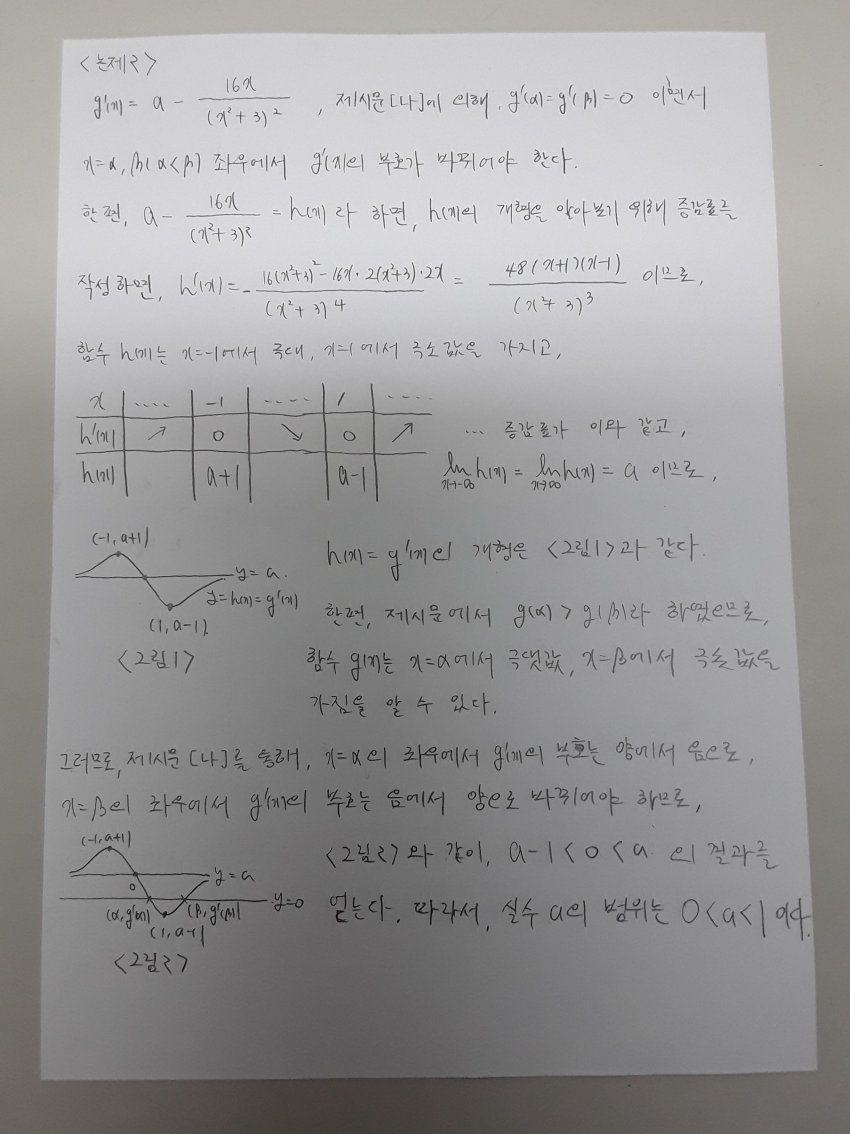 <논제2>
g'(x) = a - 16x / (x²+3)² , 제시문 [나]에 의해, g'(α)=g'(β)=0 이면서
x=α, β(α<β) 좌우에서 g'(x)의 부호가 바뀌어야 한다.
한편, a - 16x / (x²+3)² = h(x) 라 하면, h(x)의 개형을 알아보기 위해 증감표를
작성하면, h'(x) = - 16(x²+3)² - 16x · 2(x²+3) · 2x / (x²+3)⁴ = 48(x+1)(x-1) / (x²+3)³ 이므로,
함수 h(x)는 x=-1에서 극대, x=1에서 극소값을 가지고,
x | ···· | -1 | ····· | 1 | ·····
h'(x) | ↗ | 0 | ↘ | 0 | ↗ ··· 증감표가 이와 같고,
h(x) | | a+1 | | a-1 | lim x→-∞ h(x) = lim x→∞ h(x) = a 이므로,
(-1, a+1)
y=a.
y=h(x)=g'(x)
(1, a-1)
<그림1>
h(x) = g'(x)의 개형은 <그림1>과 같다.
한편, 제시문에서 g(α) > g(β)라 하였으므로,
함수 g(x)는 x=α에서 극댓값, x=β에서 극솟값을
가짐을 알 수 있다.
그러므로, 제시문 [나]를 통해, x=α의 좌우에서 g'(x)의 부호는 양에서 음으로,
x=β의 좌우에서 g'(x)의 부호는 음에서 양으로 바뀌어야 하므로,
(-1, a+1)
0
y=a
(α, g'(α))
(β, g'(β))
y=0
(1, a-1)
<그림2>
<그림2>와 같이, a-1<0<a 의 결과를
얻는다. 따라서, 실수 a의 범위는 0<a<1 이다.